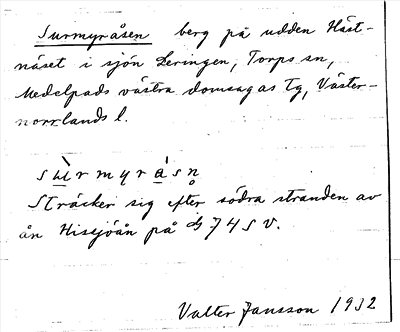 Surmyråsen berg på udden Häst-
näset i sjön Leringen, Torps sn,
Medelpads västra domsagas tg, Väster-
norrlands l.
sùrmyrásn̥
Sträcker sig efter södra stranden av
ån Hisjöån på 74 SV.
Valter Jansson 1932